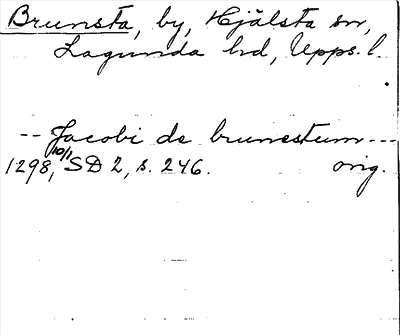 Brunsta, by, Hjälsta sn,
Lagunda hd, Upps. l.
-- Jacobi de brunestum ---
1298, 10/1 SD 2, s. 246. orig.